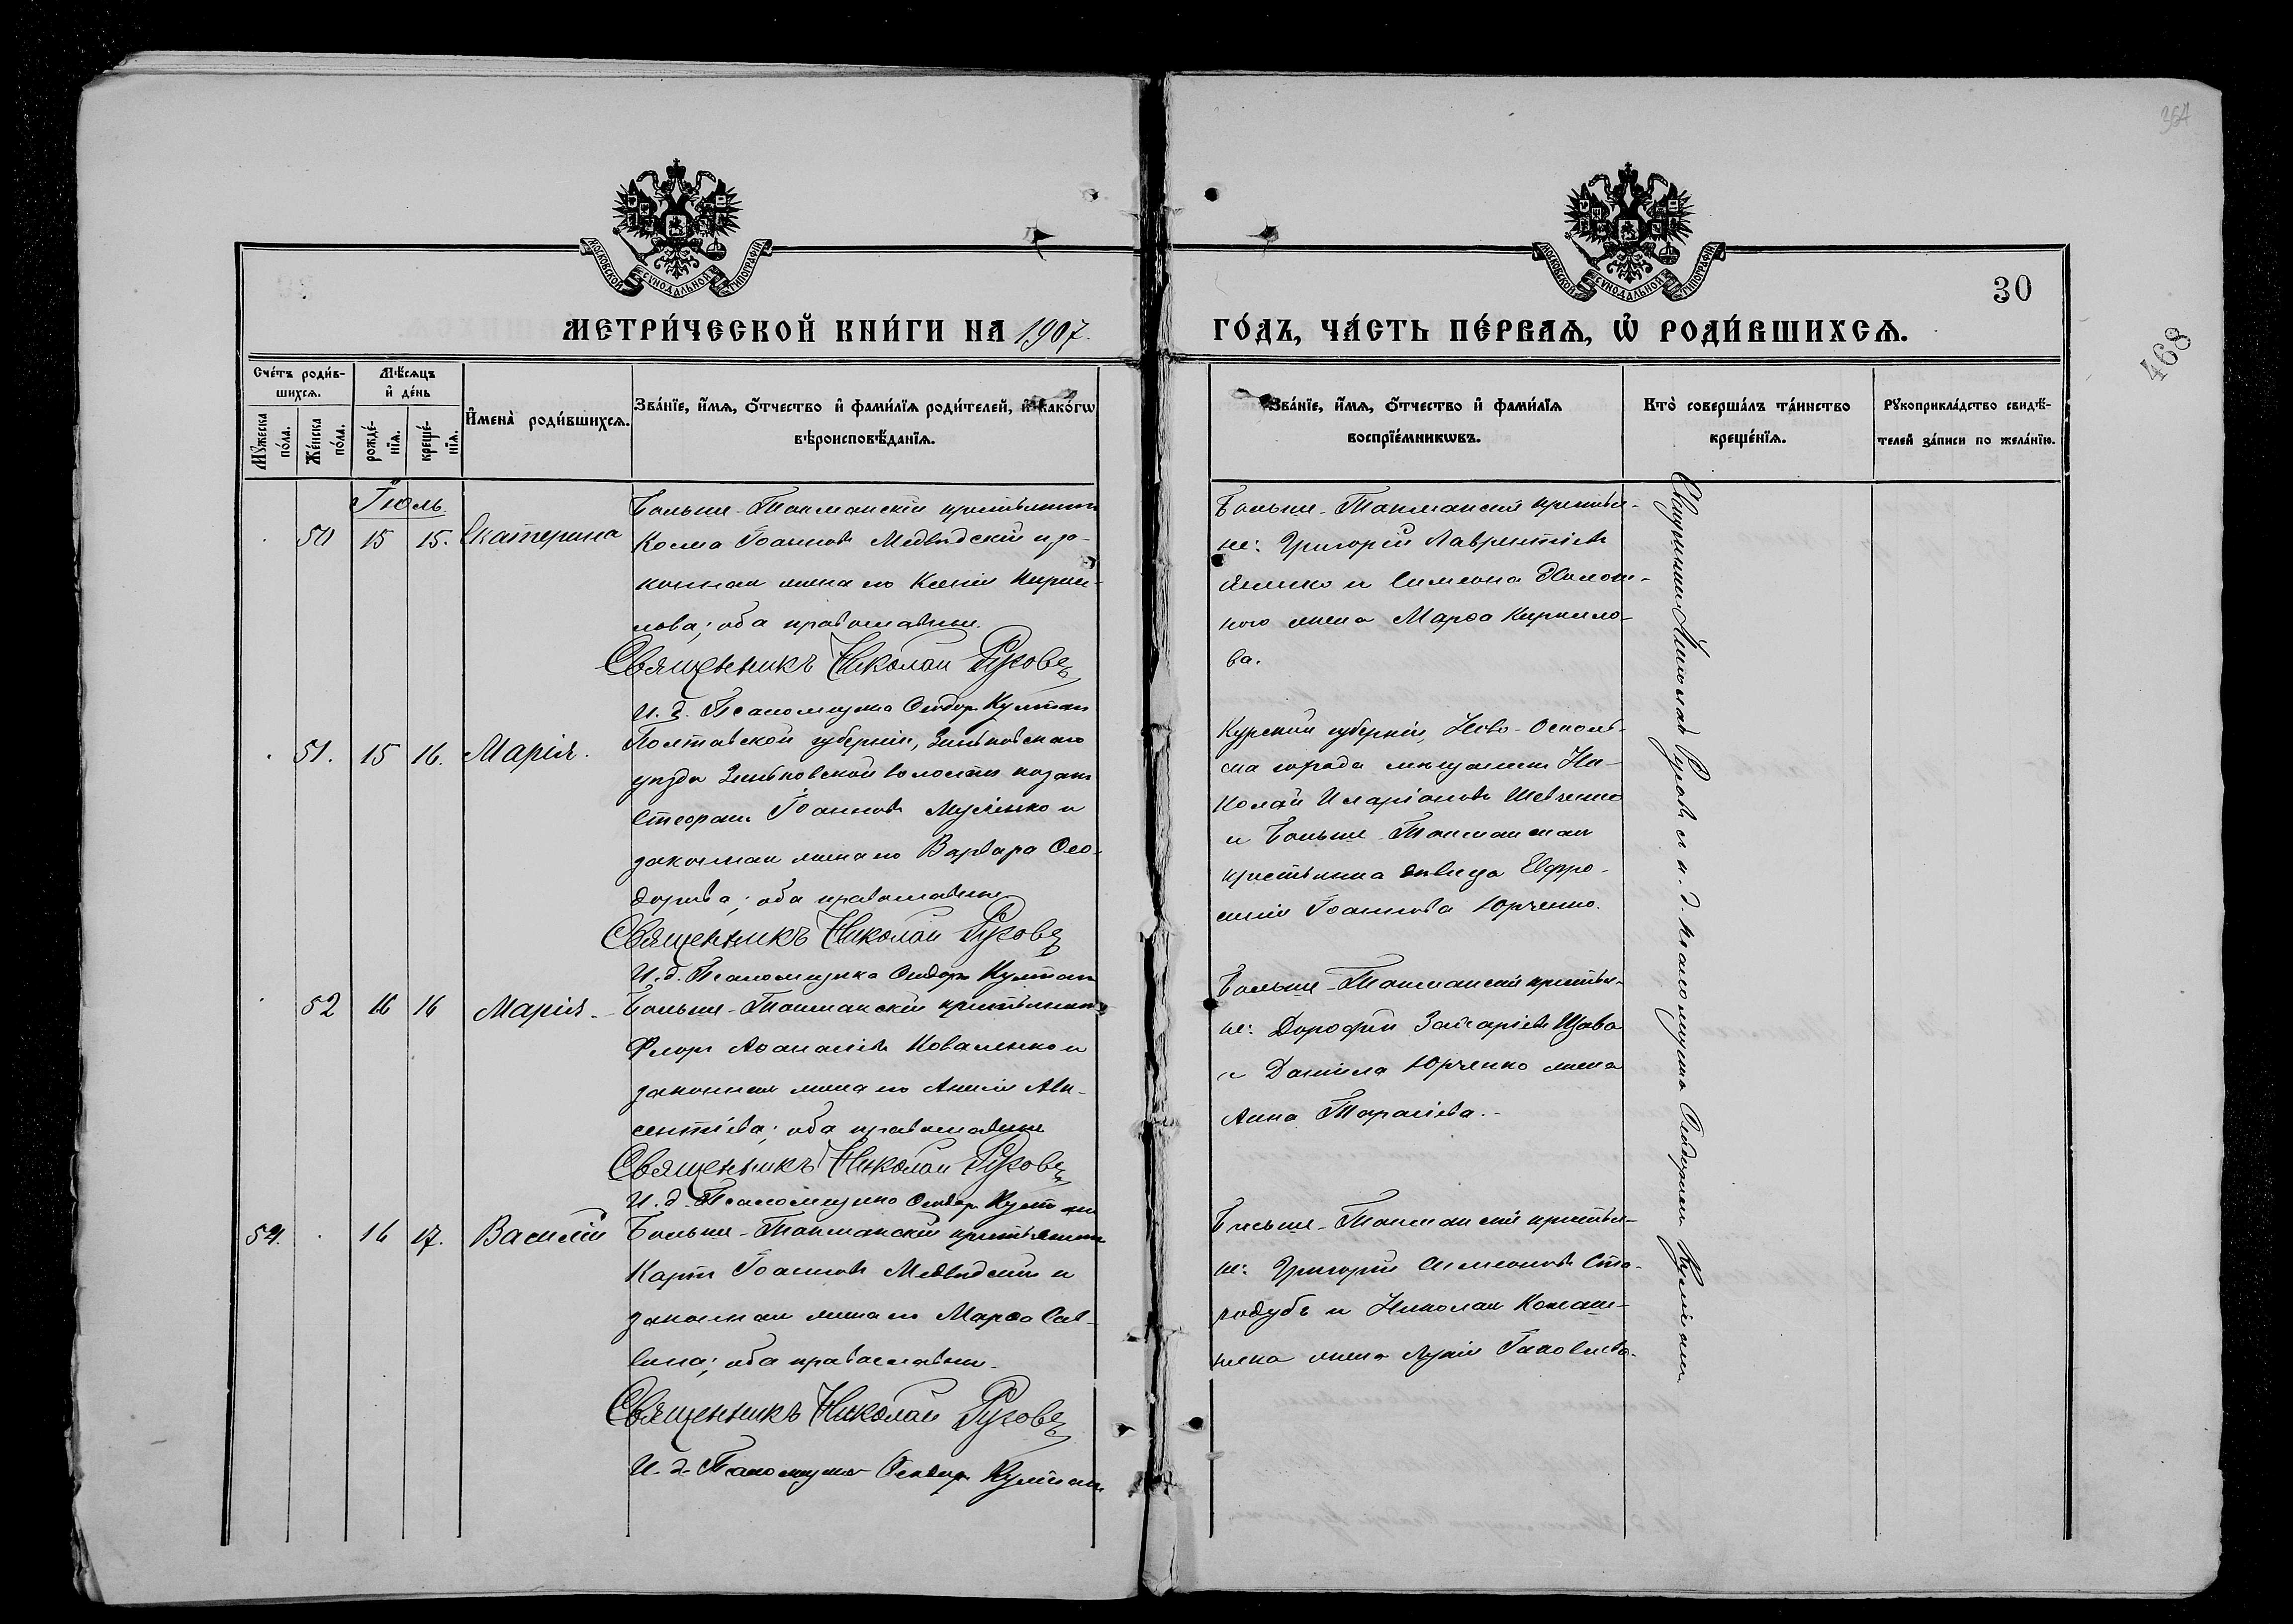 364
30
468
МОСКОВСКОЙ СУНОДАЛЬНОЙ ТИПОГРАФІИ
МОСКОВСКОЙ СУНОДАЛЬНОЙ ТИПОГРАФІИ
МЕТРИ́ЧЕСКОЙ КНИ́ГИ НА 1907.
ГО́ДЪ, ЧА́СТЬ ПЕ́РВАѦ, Ѡ РОДИ́ВШИХСѦ.
Сче́тъ роди́в-
шихсѧ.
Мꙋжеска по́ла.
Же́нска по́ла.
Мѣ́сѧцъ
и҆ де́нь
рожде́-
нїѧ.
креще́-
нїѧ.
И҆мена̀ роди́вшихсѧ.
Зва́нїе, и҆́мѧ, ѻ҆́тчество и҆ фами́лїѧ роди́телей, и҆ како́гѡ
вѣроисповѣ́данїѧ.
Зва́нїе, и҆́мѧ, ѻ҆́тчество и҆ фами́лїѧ
воспрїе́мникѡвъ.
Кто̀ соверша́лъ та́инство
креще́нїѧ.
Рꙋкоприкла́дство свидѣ́-
телей за́писи по жела́нїю.
Іюль.
50 15 15. Екатерина
Больше-Токмакскій крестьянинъ
Косма Іоанновъ Медвѣдскій и за-
конная жена его Ксенія Кирил-
лова; оба православные.
Священникъ Николай Руговъ
И. д. Псаломщика Ѳеодоръ
Больше-Токмакскіе крестья-
не: Григорій Лаврентіевъ
и Симеона
жена Марѳа Кирилло-
ва.
51. 15 16. Марія.
Полтавской губерніи, Зиньковскаго
уѣзда Зиньковской волости козакъ
Стефанъ Іоанновъ и
законная жена его Варвара Ѳео-
дорова; оба православные
Священникъ Николай Руговъ
И. д. Псаломщика Ѳеодоръ
Курской губерніи, Ново-Осколь-
ска города мѣщанинъ Ни-
колай Иларіоновъ Шевченко
и Больше-Токмакская
крестьянка дѣвица Евфро-
синія Іоаннова Юрченко.
52 16 16 Марія.
Больше-Токмакскій крестьянинъ
Флоръ Аѳанасіевъ Коваленко и
законная жена его Анисія Авк-
сентіева; оба православные
Священникъ Николай Руговъ
И. д. Псаломщика Ѳеодоръ
Больше-Токмакскіе крестья-
не: Дороѳей Захаріевъ
и Даніила Юрченко жена
Анна Тарасіева.
54. 16 17. Василій
Больше-Токмакскій крестьянинъ
Карпъ Іоанновъ Медвѣдскій и
законная жена его Марѳа Сав-
вина; оба православные.
Священникъ Николай Руговъ
И. д. Псаломщика Ѳеодоръ
Больше-Токмакскіе крестья-
не: Григорій Симеоновъ Ста-
родубъ и Николая
жена Іаковлева.
Священникъ Николай Руговъ и и. д. псаломщика